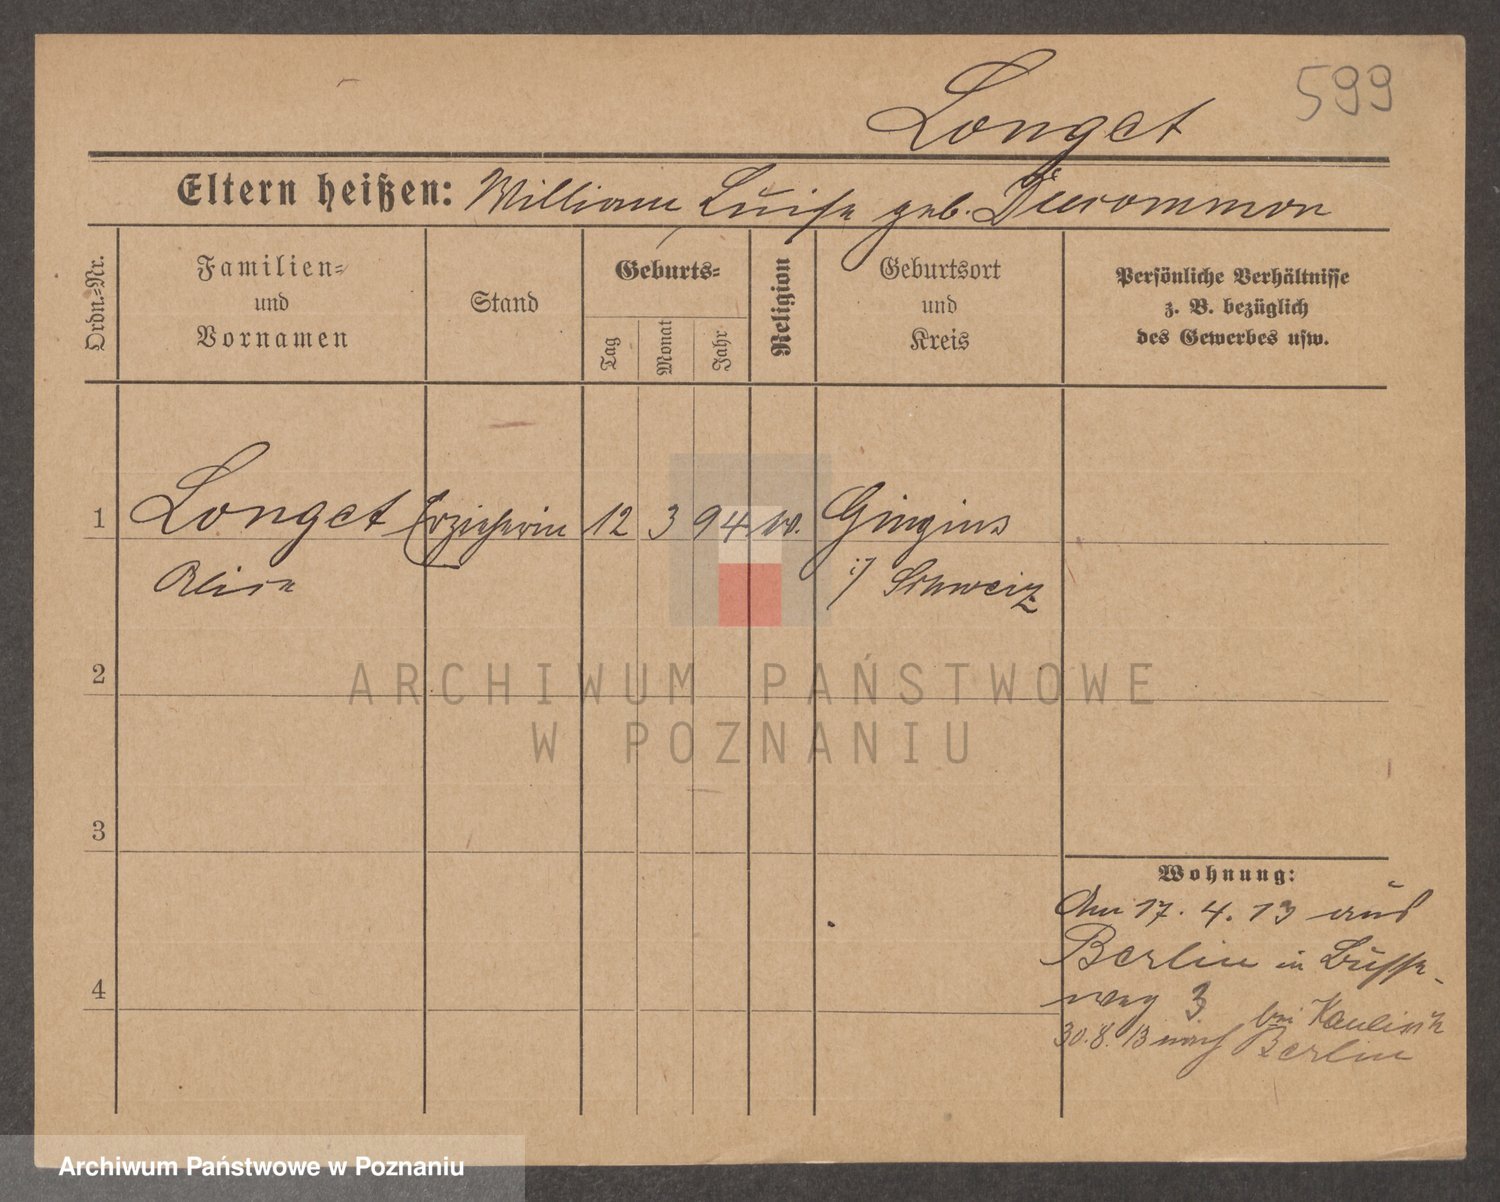 599
Longet
Eltern heißen: William Luise geb. Ducommon
Ordn.=Nr.
Familien=
und
Vornamen
Stand
Geburts=
Tag
Monat
Jahr
Religion
Geburtsort
und
Kreis
Persönliche Verhältnisse
z. B. bezüglich
des Gewerbes usw.
1 Longet Erzieherin 12 3 94 w. Gingins
Alise i/ Schweiz
2
ARCHIWUM PAŃSTWOWE
W POZNANIU
3
Wohnung:
Am 17. 4. 13 aus
Berlin in Busse-
4
weg 3 bei
30.8.13 nach Berlin
Archiwum Państwowe w Poznaniu